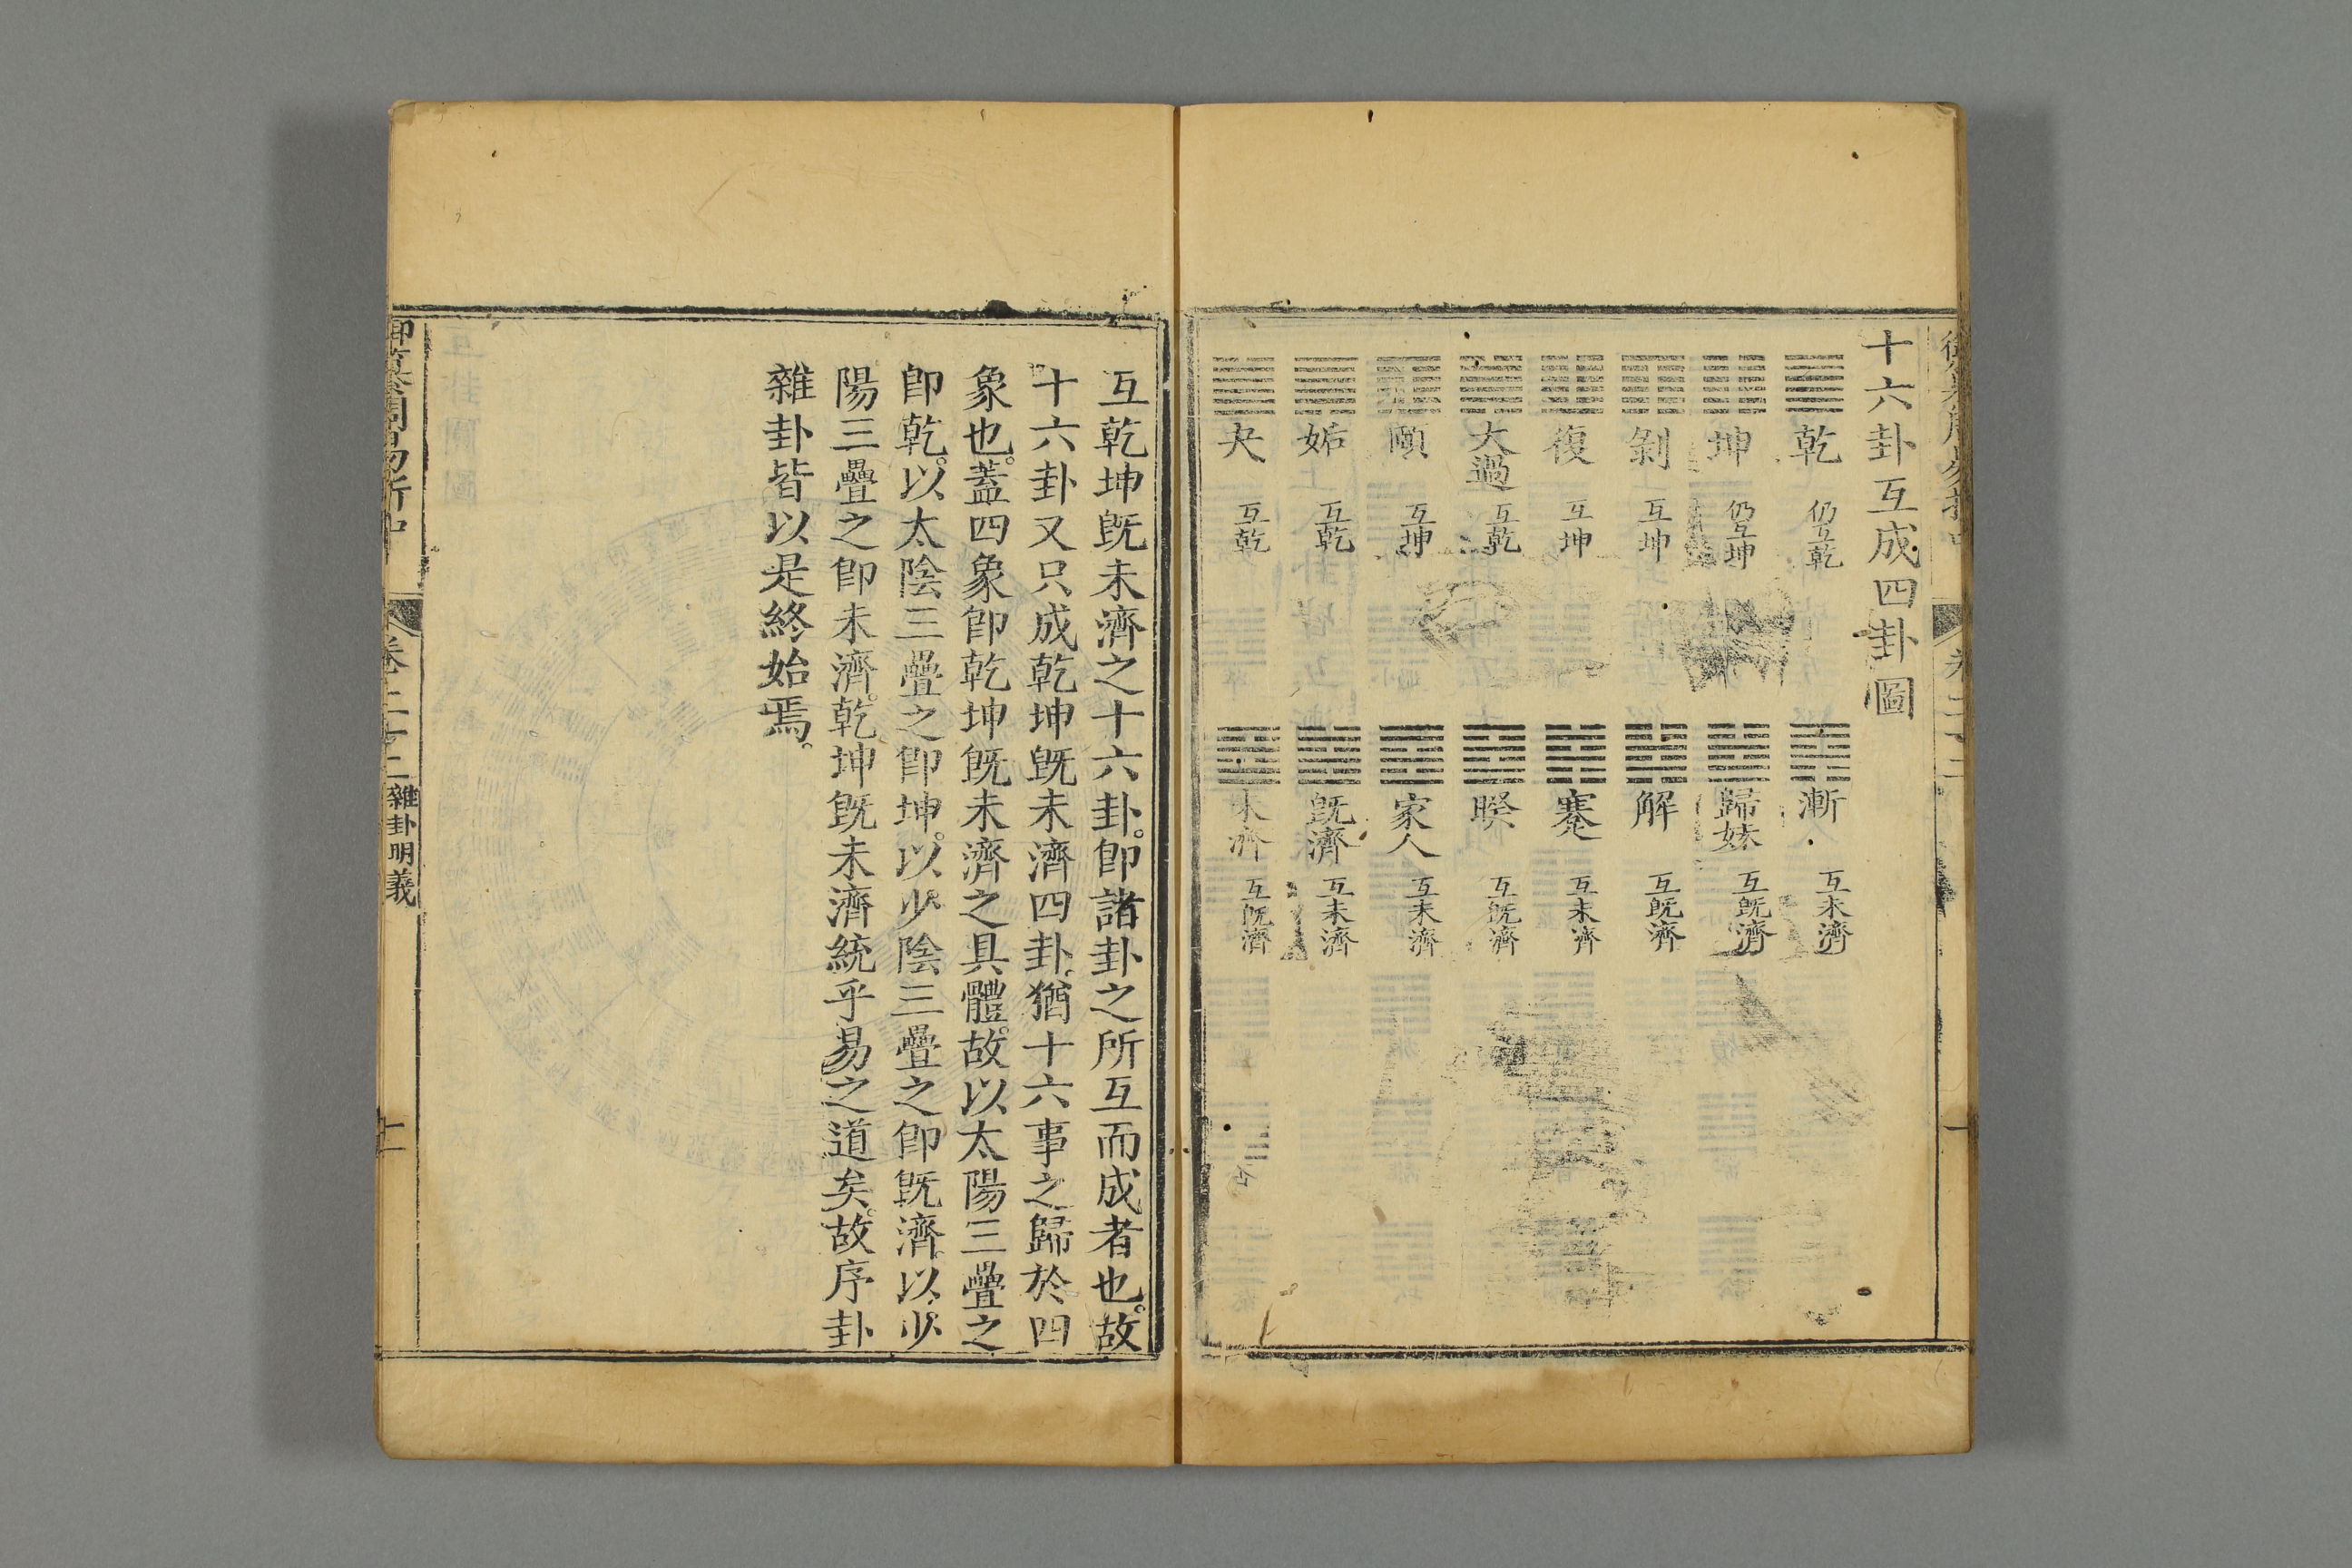 十六卦互成四卦圖
乾 仍互乾
坤 仍互坤
剝 互坤
復 互坤
大過 互乾
頤 互坤
姤 互乾
夬 互乾
漸 互未濟
歸妹 互既濟
解 互既濟
蹇 互未濟
睽 互既濟
家人 互未濟
既濟 互未濟
未濟 互既濟
互乾坤旣未濟之十六卦。卽諸卦之所互而成者也。故
十六卦又只成乾坤旣未濟四卦。猶十六事之歸於四
象也。蓋四象卽乾坤旣未濟之具體。故以太陽三疊之
卽乾。以太陰三疊之卽坤。以少陰三疊之卽旣濟。以少
陽三疊之卽未濟。乾坤旣未濟統乎易之道矣。故序卦
雜卦皆以是終始焉。
御纂周易折中
卷二十二 雜卦明義